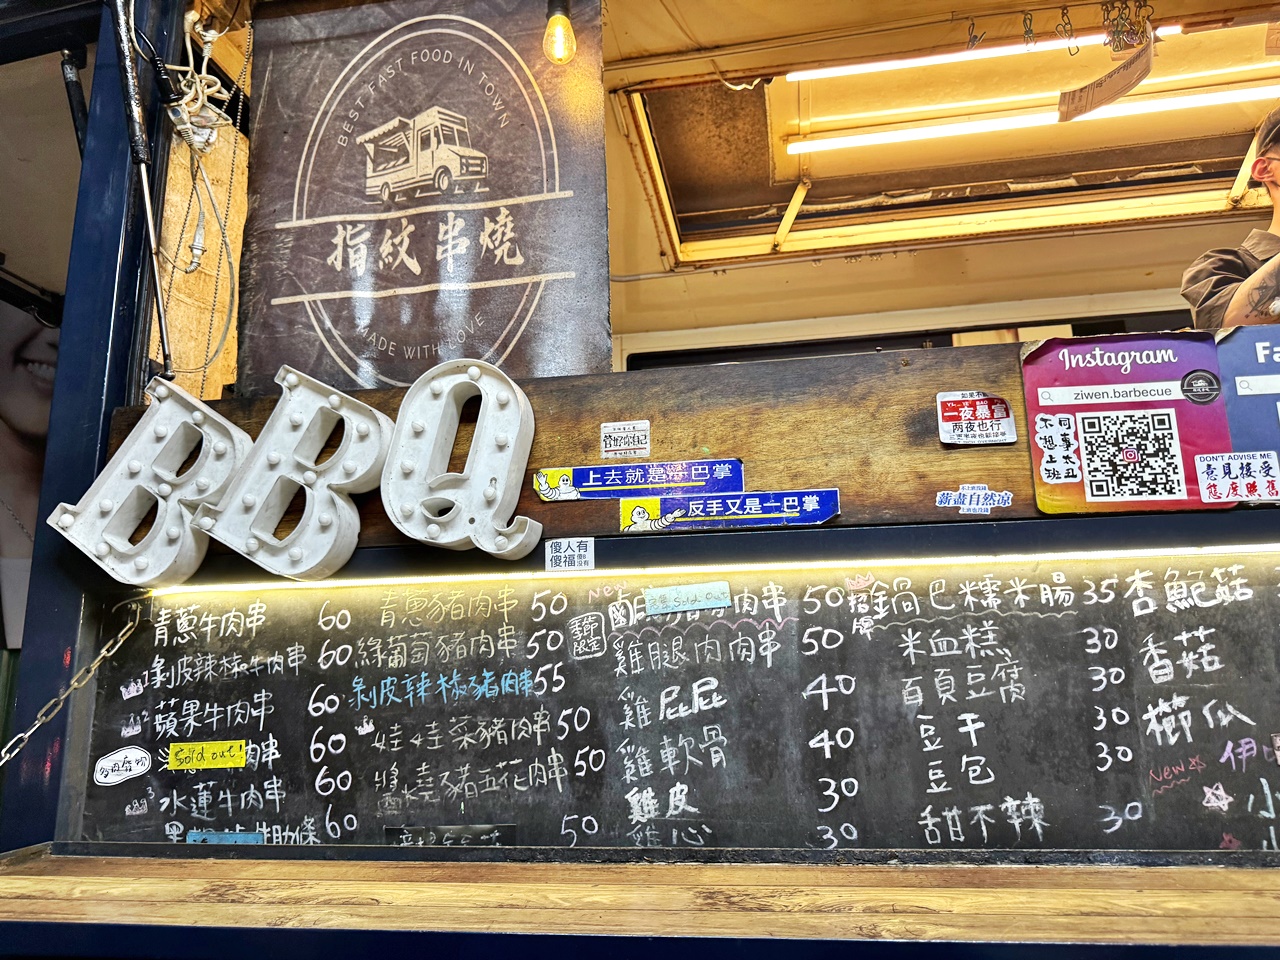 BEST FAST FOOD IN TOWN
指紋串燒
MADE WITH LOVE
BBQ
管好你自己
上去就是一巴掌
反手又是一巴掌
傻人有
傻福
一夜暴富
两夜也行
薪盡自然凉
Instagram
ziwen.barbecue
同事太丑
不想上班
Fa
DON'T ADVISE ME
意見接受
態度照舊
青蔥牛肉串 60
剝皮辣椒牛肉串 60
蘋果牛肉串 60
Sold out! 肉串 60
水蓮牛肉串 60
牛肋條 60
青蔥豬肉串 50
綠葡萄豬肉串 50
剝皮辣椒豬肉串 55
娃娃菜豬肉串 50
鹽烤豬五花肉串 50
50
New
季節限定
Sold Out 肉串 50
雞腿肉肉串 50
雞屁屁 40
雞軟骨 40
雞皮 30
雞心 30
招牌
鍋巴糯米腸 35
米血糕 30
百頁豆腐 30
豆干 30
豆包 30
甜不辣 30
杏鮑菇
香菇
櫛瓜
New
伊
小